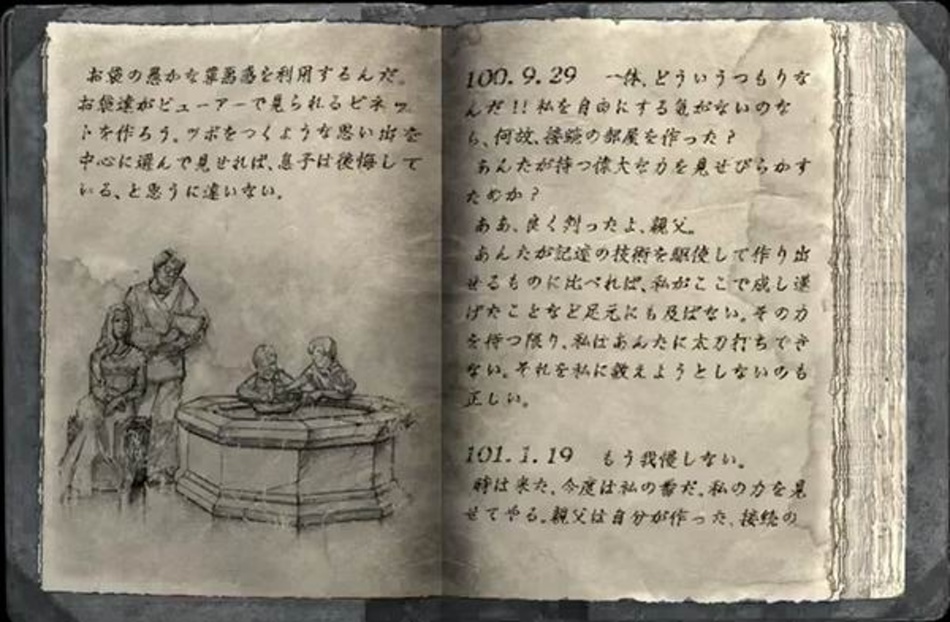 お袋の愚かな罪悪感を利用するんだ。
お袋達がビューアーで見られるビネッ
トを作ろう。ツボをつくような思い出を
中心に選んで見せれば、息子は後悔して
いる、と思うに違いない。
100.9.29 一体、どういうつもりな
んだ!!私を自由にする気がないのな
ら、何故、接続の部屋を作った?
あんたが持つ偉大な力を見せびらかす
ためか?
ああ、良く判ったよ、親父。
あんたが記述の技術を駆使して作り出
せるものに比べれば、私がここで成し遂
げたことなど足元にも及ばない。その力
を持つ限り、私はあんたに太刀打ちでき
ない。それを私に教えようとしないのも
正しい。
101.1.19 もう我慢しない。
時は来た。今度は私の番だ。私の力を見
せてやる。親父は自分が作った、接続の